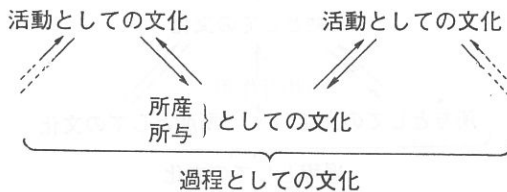 活動としての文化 活動としての文化
所産
所与 }としての文化
過程としての文化